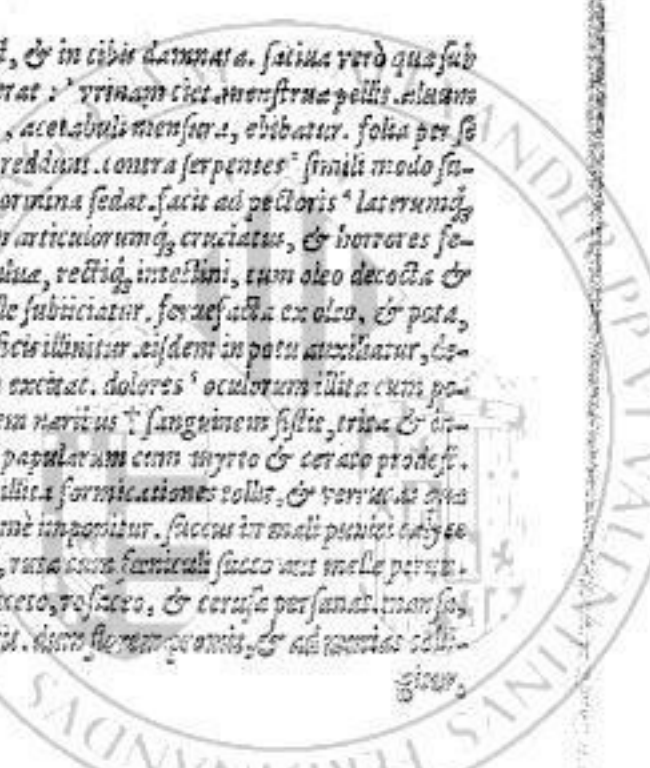 , & in cibis damnata. satiua verò quæ sub
rat : vrinam ciet.menstrua pellit.aluum
, acetabuli mensura, ebibatur. folia per se
reddunt.contra serpentes simili modo su-
ormina sedat.facit ad pectoris laterumq́;
articulorumq́; cruciatus, & horrores fe-
uluæ, rectiq́; intestini, cum oleo decocta &
le subiiciatur. feruefacta ex oleo, & pota,
ficis illinitur.eisdem in potu auxiliatur, de-
excitat. dolores oculorum illita cum po-
naribus † sanguinem sistit, trita & in-
papularum cum myrto & cerato prodest.
illita formicationes tollit, & verrucas quæ
imponitur. succus in mali punici calyce
, ruta cum feniculi succo aut melle perun-
aceto, rosaceo, & cerusa persanat. mansa,
. dum florem promit, & ad colli-
gitur,